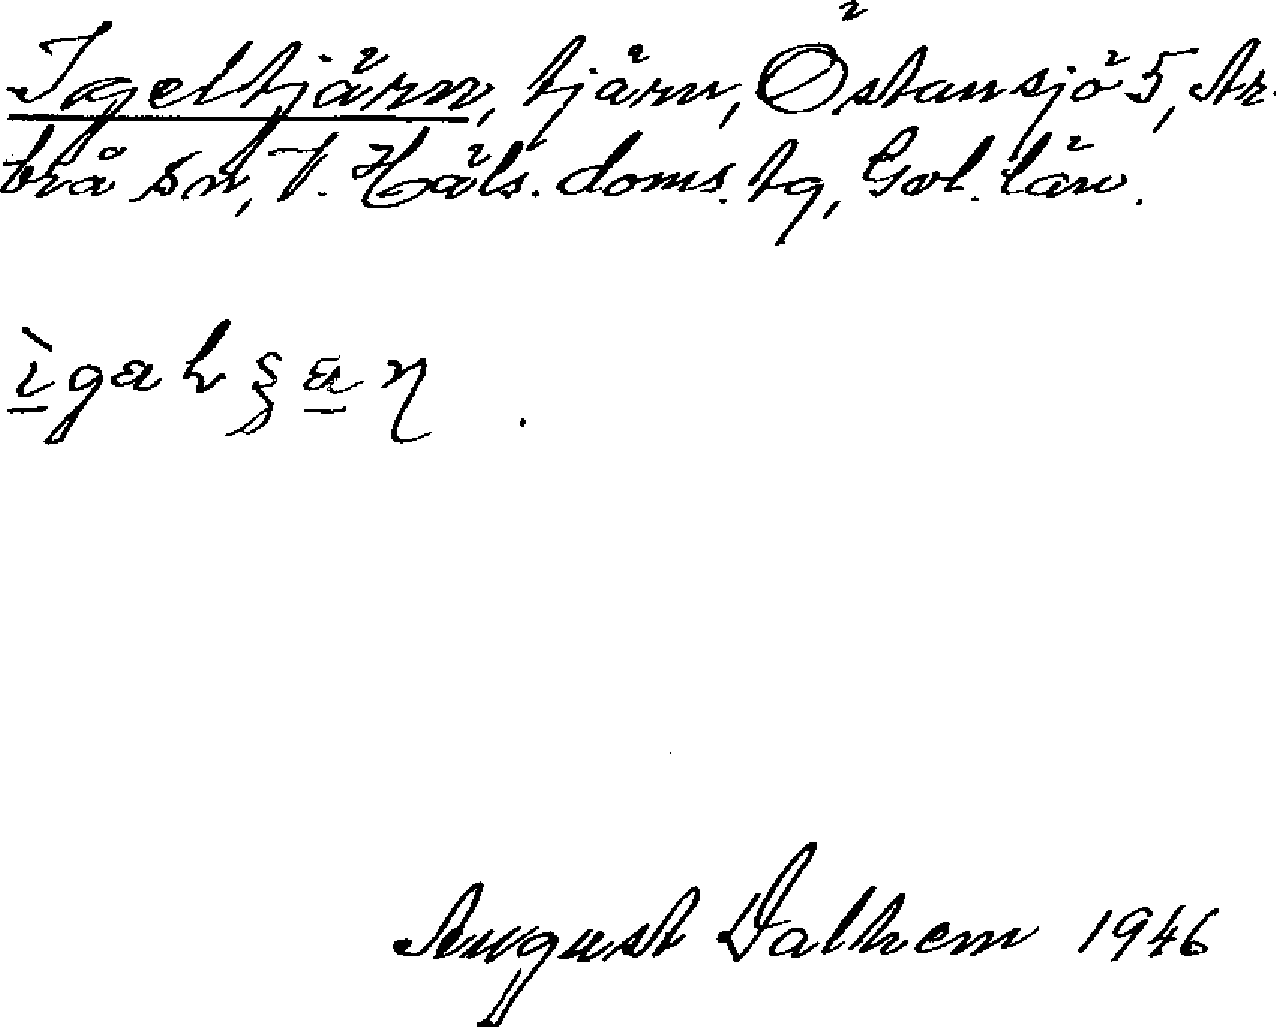 Igeltjärn, tjärn, Östansjö 5, Ar-
brå sn, V. Häls. doms. tg, Gvl. län.
August Dalhem 1946